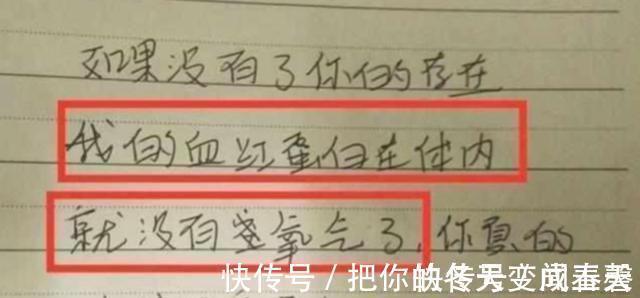 如果没有了你的存在
我的血红蛋白在体内
就没有氧气了，你真的
快传号 / 把你的